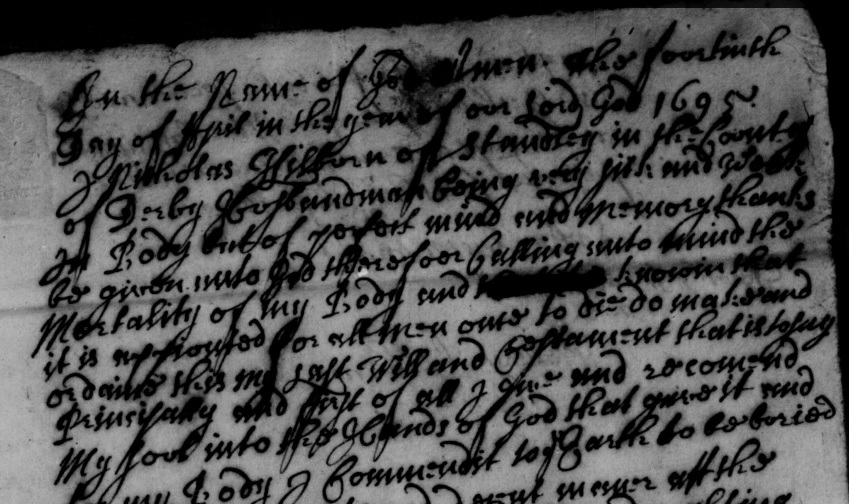 In the Name of God Amen the foortinth
Day of April in the year of oor Lord God 1695
I Nicholas Hilton of Standley in the Coonty
of Derby Hosbandman being very sick and weake
in Body but of perfect mind and Memory thanks
be given unto God therefoor Calling unto mind the
Mortality of my Body and knowin that
it is appointed for all men once to die do make and
ordaine this my Last Will and Testament that is to say
Principally and first of all I give and recomend
My sool into the Hands of God that gave it and
my Body I Commend it to the Earth to be boried
decent maner att the